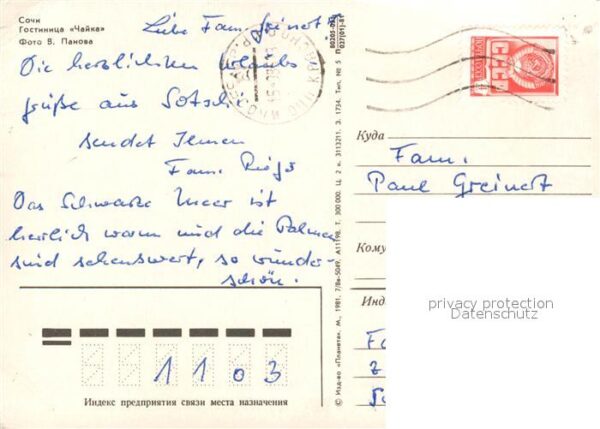 Сочи
Гостиница «Чайка»
Фото В. Панова
Liebe Fam. Greinert
Die herzlichsten Urlaubs-
grüße aus Sotschi
sendet Ihnen
Fam.
Das Schwarze Meer ist
herrlich warm und die Palmen
sind sehenswert, so wunder-
schön.
1103
Индекс предприятия связи места назначения
© Изд-во «Планета». М., 1981. 7/8в-5049. А11198. Т. 300 000. Ц. 2 к. 3113211. З. 1734. Тип. № 5
СССР
Куда
Fam.
Paul Greinert
Кому
Инд
privacy protection
Datenschutz
Fa
Z
So